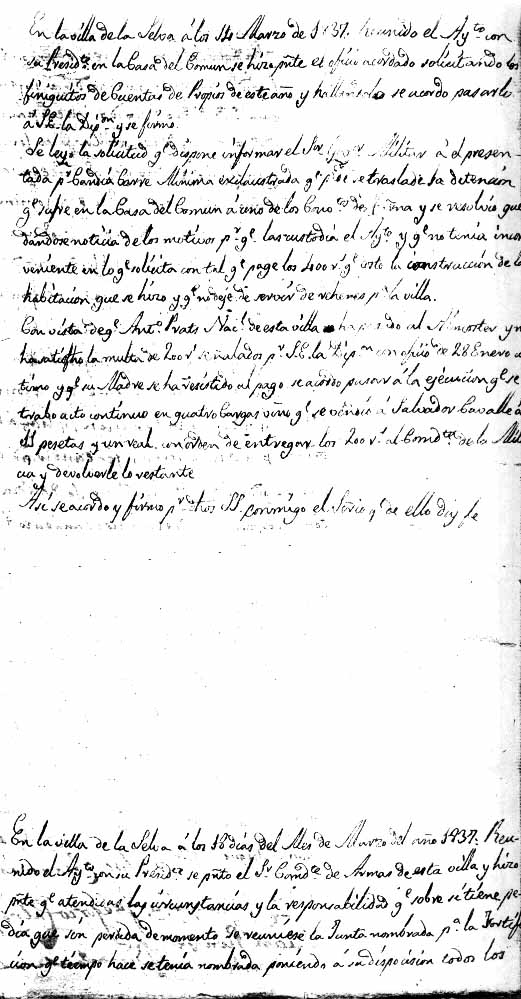 En la villa de la Selva á los 14 Marzo de 1837. Reunido el Ayto con
su Presidte en la Casa del Comun se hizo pnte el oficio acordado solicitando los
finiquitos de Cuentas de Propios de este año y se acordo pasarlo
á S.E. la Dipon y se firmó.
Se leyó la solicitud qe dispone informar el Sor Militar á el presen-
tada pr Candia Carre Minima exclaustrada qe pide se traslade la detencion
qe sufre en la Casa del Comun á uno de los de y se resolvió que
dandose noticia de los motivos pr qe las custodia el Ayto y qe no tenia incon
veniente en lo qe solicita con tal qe page los 400 rs qe costo la construcción de la
habitacion que se hizo y qe no deje de servir de rehenes pa la villa.
Con vista de qe Anto Prats Nacl de esta villa ha al Monster y no
ha satisfho la multa de 200 rs señalados pr S.E. la Dipon en oficio de 28 Enero ul
timo y qe su Madre se ha resistido al pago se acordo pasar á la ejecucion qe se
trabo acto continuo en quatro Cargas vino qe se vendió á Salvador Cavalle á
pesetas y un real, con orden de entregar los 200 rs al Comdte de la Mili
cia y devolverle lo restante
Asi se acordo y firmo pr dhos SS. conmigo el Srio qe de ello doy fe
En la villa de la Selva á los 16 dias del Mes de Marzo del año 1837. Reu-
nido el Ayto con su Presidte se pnto el Sr Comdte de Armas de esta villa y hizo
pnte qe atendidas las circunstancias y la responsabilidad qe sobre si tiene pe-
dia que sin perdida de momento se reuniese la Junta nombrada pa la Fortifi
cion qe tiempo hace se tenia nombrada poniendo á su disposicion todos los